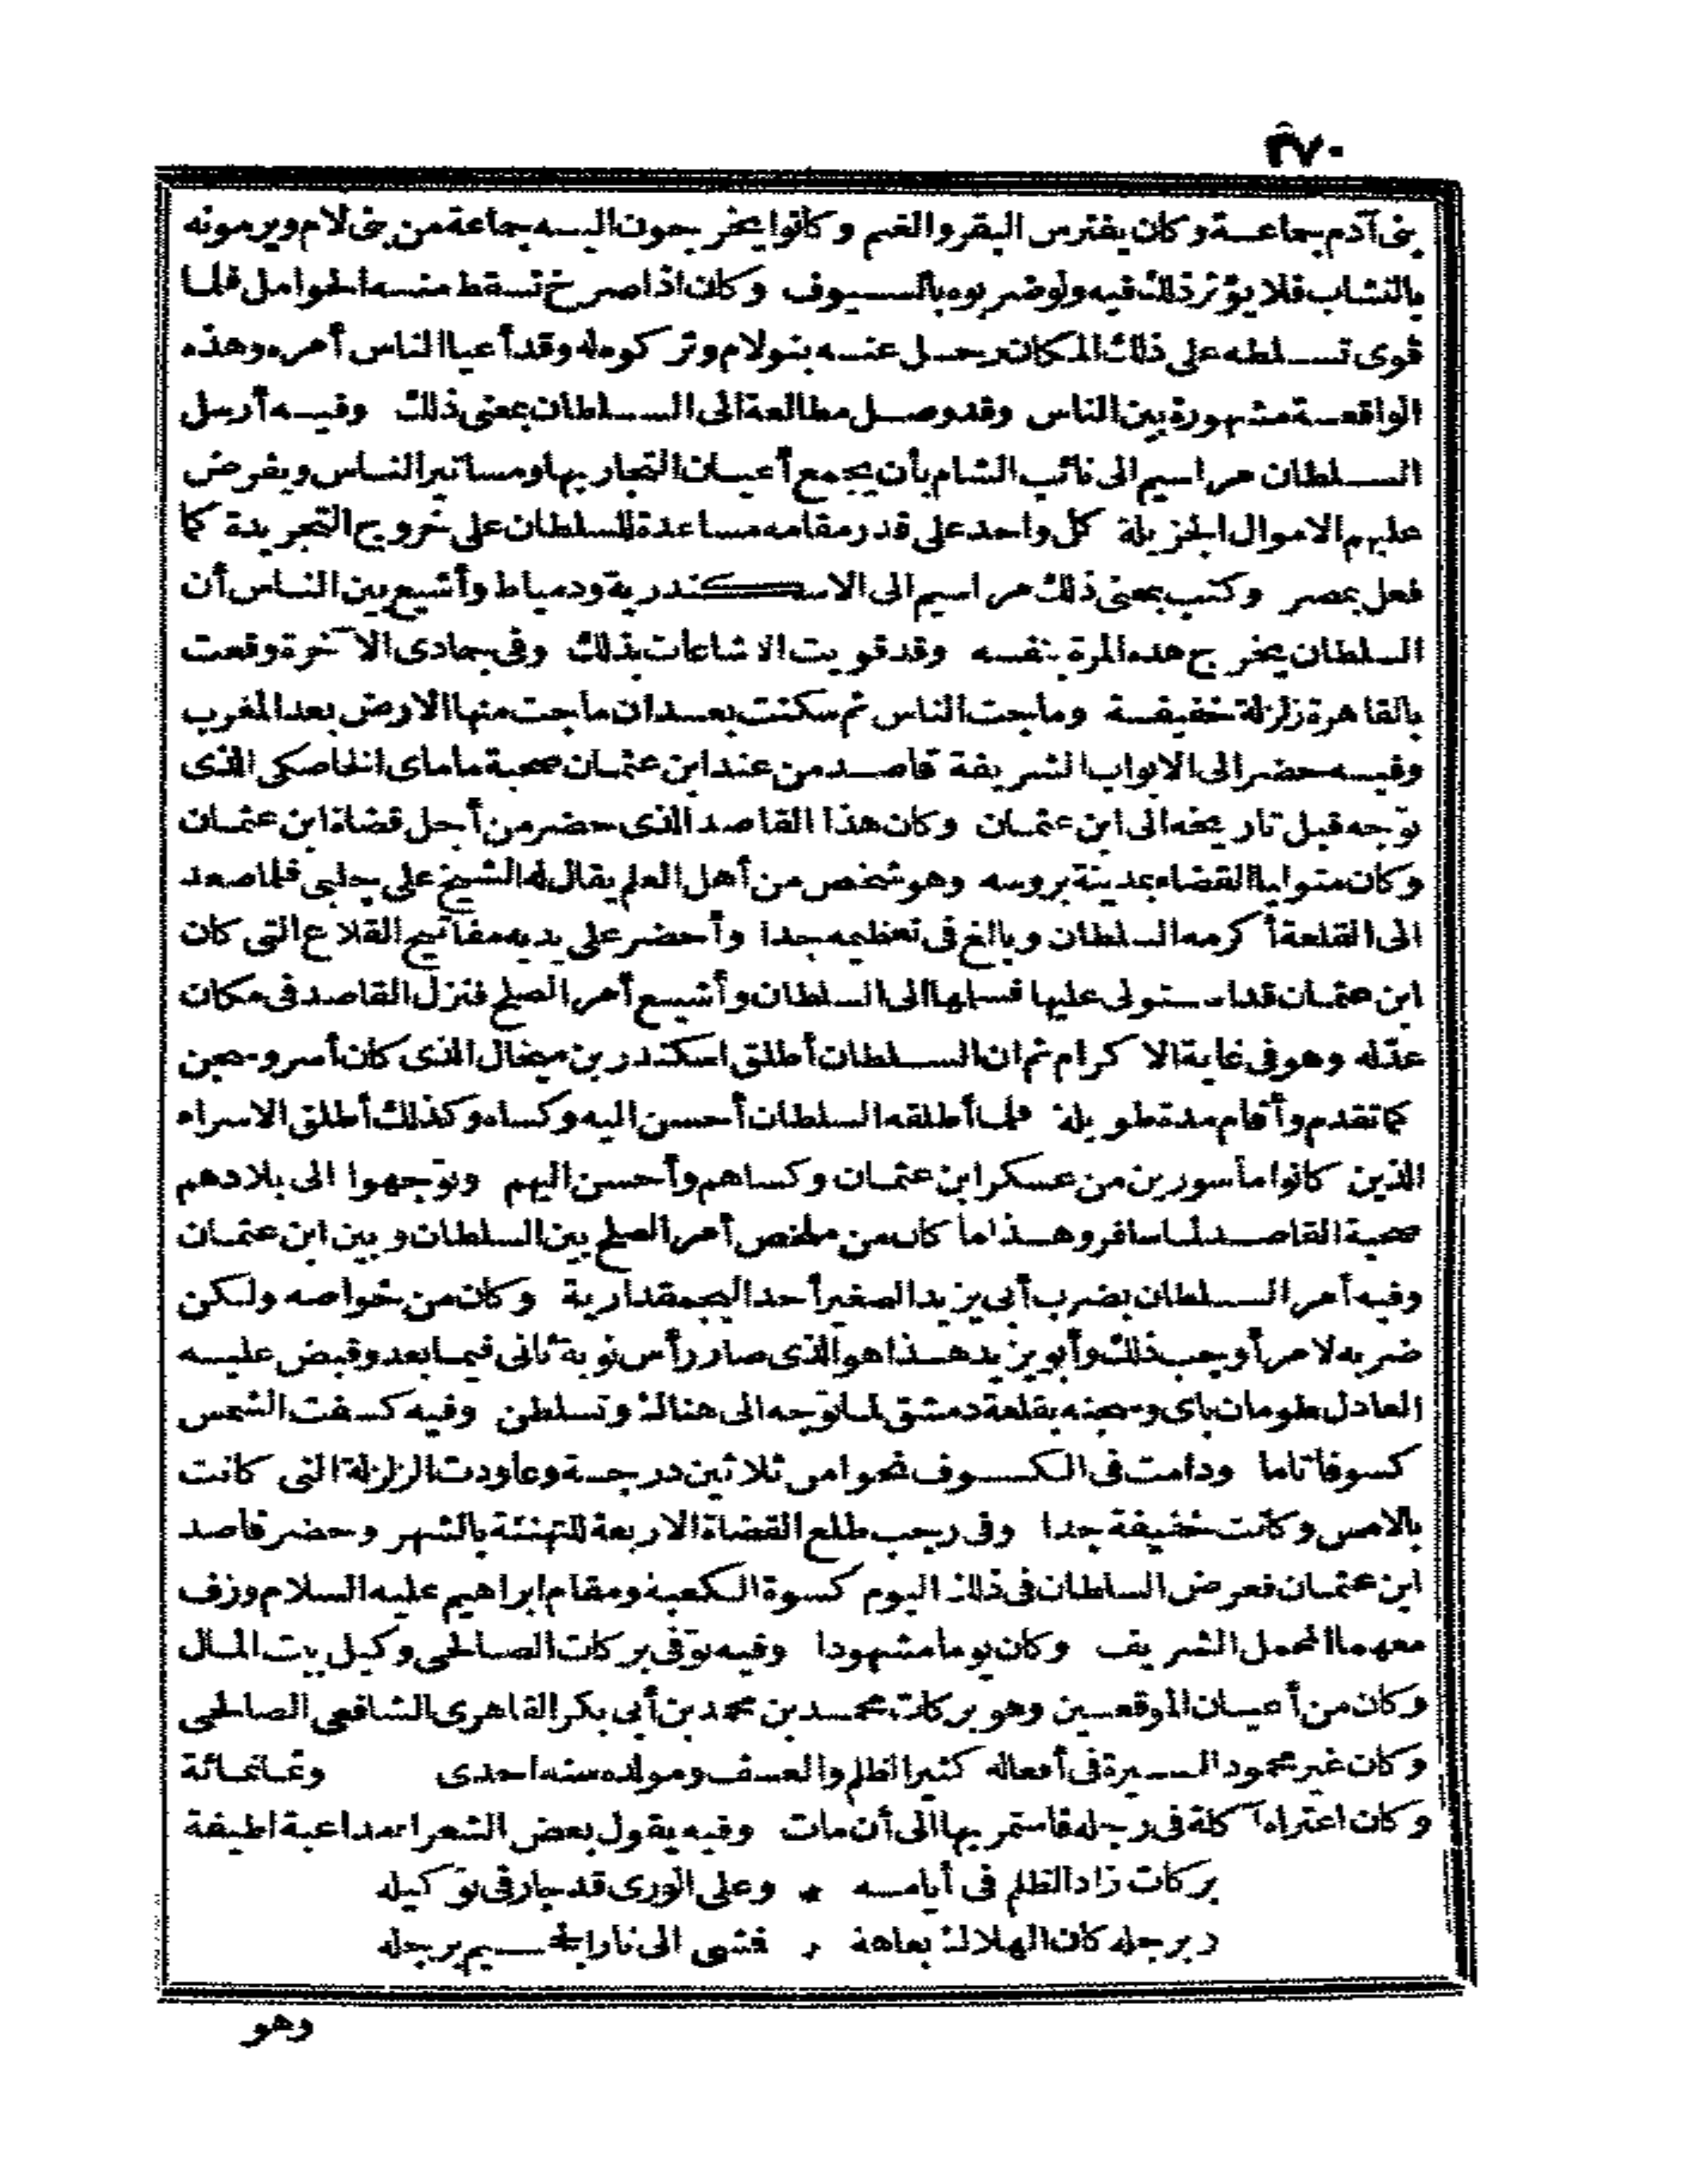 ٢٧٠
بنى آدم جماعة وكان يفترس البقر والغنم وكانوا يخرجون اليه جماعة من بنى لام ويرمونه
بالنشاب فلا يؤثر ذلك فيه ولو ضربوه بالسيوف وكان اذا صرخ تسقط منه الحوامل فلما
قوى تسلطه على ذلك المكان رحل عنه بنو لام وتركوه له وقد أعيا الناس أمره وهذه
الواقعة مشهورة بين الناس وقد وصل مطالعة الى السلطان بمعنى ذلك وفيه أرسل
السلطان مراسيم الى نائب الشام بأن يجمع أعيان التجار بها ومساتير الناس ويفرض
عليهم الاموال الجزيلة كل واحد على قدر مقامه مساعدة للسلطان على خروج التجريدة كما
فعل بمصر وكتب بمعنى ذلك مراسيم الى الاسكندرية ودمياط وأشيع بين الناس أن
السلطان يخرج هذه المرة بنفسه وقد قويت الاشاعات بذلك وفى جمادى الآخرة وقعت
بالقاهرة زلزلة خفيفة وماجت الناس ثم سكنت بعد ان ماجت منها الارض بعد المغرب
وفيه حضر الى الابواب الشريفة قاصد من عند ابن عثمان صحبة ماماى الخاصكى الذى
توجه قبل تاريخه الى ابن عثمان وكان هذا القاصد الذى حضر من أجل قضاة ابن عثمان
وكان متوليا القضاء بمدينة بروسه وهو شخص من أهل العلم يقال له الشيخ على جلبى فلما صعد
الى القلعة أكرمه السلطان وبالغ فى تعظيمه جدا وأحضر على يديه مفاتيح القلاع التى كان
ابن عثمان قد استولى عليها فسلمها الى السلطان وأشيع أمر الصلح فنزل القاصد فى مكان
عدّ له وهو فى غاية الاكرام ثم ان السلطان أطلق اسكندر بن ميخال الذى كان أسر وسجن
كما تقدم وأقام مدة طويلة فلما أطلقه السلطان أحسن اليه وكساه وكذلك أطلق الاسراء
الذين كانوا مأسورين من عسكر ابن عثمان وكساهم وأحسن اليهم وتوجهوا الى بلادهم
صحبة القاصد لما سافر وهذا ما كان من ملخص أمر الصلح بين السلطان وبين ابن عثمان
وفيه أمر السلطان بضرب أبى يزيد الصغير أحد البجمقدارية وكان من خواصه ولكن
ضربه لامر أوجب ذلك وأبو يزيد هذا هو الذى صار رأس نوبة ثانى فيما بعد وقبض عليه
العادل طومان باى وسجنه بقلعة دمشق لما توجه الى هنالك وتسلطن وفيه كسفت الشمس
كسوفا تاما ودامت فى الكسوف نحوا من ثلاثين درجة وعاودت الزلزلة التى كانت
بالامس وكانت خفيفة جدا وفى رجب طلع القضاة الاربعة للتهنئة بالشهر وحضر قاصد
ابن عثمان فعرض السلطان فى ذلك اليوم كسوة الكعبة ومقام ابراهيم عليه السلام وزف
معهما المحمل الشريف وكان يوما مشهودا وفيه توفى بركات الصالحى وكيل بيت المال
وكان من أعيان الموقعين وهو بركات محمد بن محمد بن أبى بكر القاهرى الشافعى الصالحى
وكان غير محمود السيرة فى أفعاله كثير الظلم والعسف ومولده سنة احدى وثمانمائة
وكان اعتراه آكلة فى رجله فاستمر بها الى أن مات وفيه يقول بعض الشعراء مداعبة لطيفة
بركات زاد الظلم فى أيامه * وعلى الورى قد جار فى توكيله
وبرجله كان الهلاك بعاهة * فمشى الى نار الجحيم برجله
وهو